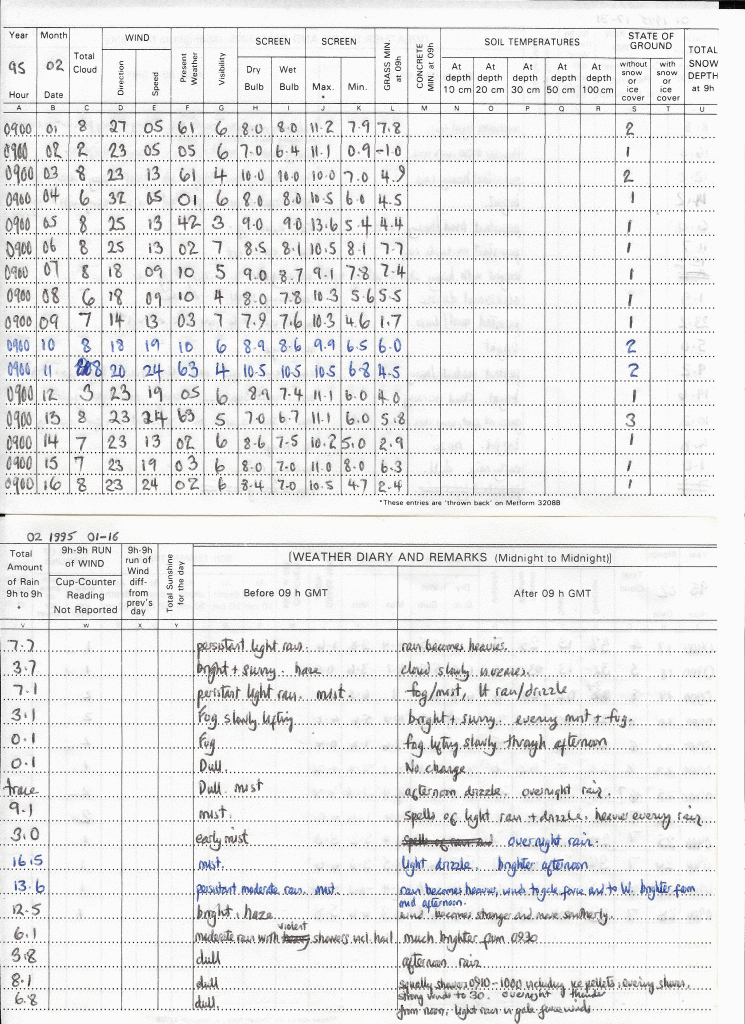 Year Month Total Cloud WIND Present Weather Visibility SCREEN SCREEN GRASS MIN. at 09h CONCRETE MIN. at 09h SOIL TEMPERATURES STATE OF GROUND TOTAL SNOW DEPTH at 9h
95 02 Direction Speed Dry Bulb Wet Bulb Max. * Min. At depth 10 cm At depth 20 cm At depth 30 cm At depth 50 cm At depth 100 cm without snow or ice cover with snow or ice cover
Hour Date
A B C D E F G H I J K L M N O P Q R S T U
0900 01 8 27 05 61 6 8.0 8.0 11.2 7.9 7.8 2
0900 02 2 23 05 05 6 7.0 6.4 11.1 0.9 -1.0 1
0900 03 8 23 13 61 4 10.0 10.0 10.0 7.0 4.9 2
0900 04 6 32 05 01 6 8.0 8.0 10.5 6.0 4.5 1
0900 05 8 25 13 42 3 9.0 9.0 13.6 5.4 4.4 1
0900 06 8 25 13 02 7 8.5 8.1 10.5 8.1 7.7 1
0900 07 8 18 09 10 5 9.0 8.7 9.1 7.8 7.4 1
0900 08 6 18 09 10 4 8.0 7.8 10.3 5.6 5.5 1
0900 09 7 14 13 03 7 7.9 7.6 10.3 4.6 1.7 1
0900 10 8 18 19 10 6 8.9 8.6 9.9 6.5 6.0 2
0900 11 8 20 24 63 4 10.5 10.5 10.5 6.8 4.5 2
0900 12 3 23 19 05 6 8.9 7.4 11.1 6.0 4.0 1
0900 13 8 23 24 63 5 7.0 6.7 11.1 6.0 5.8 3
0900 14 7 23 13 02 6 8.6 7.5 10.2 5.0 2.9 1
0900 15 7 23 19 03 6 8.0 7.0 11.0 8.0 6.3 1
0900 16 8 23 24 02 6 8.4 7.0 10.5 4.7 2.4 1
*These entries are 'thrown back' on Metform 3208B
02 1995 01-16
Total Amount of Rain 9h to 9h * 9h-9h RUN of WIND Cup-Counter Reading Not Reported 9h-9h run of Wind diff- from prev's day Total Sunshine for the day [WEATHER DIARY AND REMARKS (Midnight to Midnight)]
Before 09 h GMT After 09 h GMT
V W X Y
7.7 persistent light rain. rain becomes heavier.
3.7 bright + sunny. haze cloud slowly increases.
7.1 persistent light rain. mist. fog/mist, lt rain/drizzle
3.1 Fog slowly lifting bright + sunny. evening mist + fog.
0.1 Fog fog lifting slowly through afternoon
0.1 Dull. No change
trace Dull. mist afternoon drizzle. overnight rain.
9.1 mist. spells of light rain + drizzle, heavier evening rain
3.0 early mist spells of rain and overnight rain.
16.5 mist. light drizzle. brighter afternoon
13.6 persistent moderate rain. mist. rain becomes heavier, winds to gale force and to W. brighter from
mid afternoon.
12.5 bright, haze wind becomes stronger and more southerly.
6.1 moderate rain with violent showers incl. hail much brighter from 0930
3.8 dull afternoon rain
8.1 dull squally showers 0910-1000 including ice pellets, evening shower,
6.8 dull. strong winds to 30. overnight
from noon, light rain gale force winds